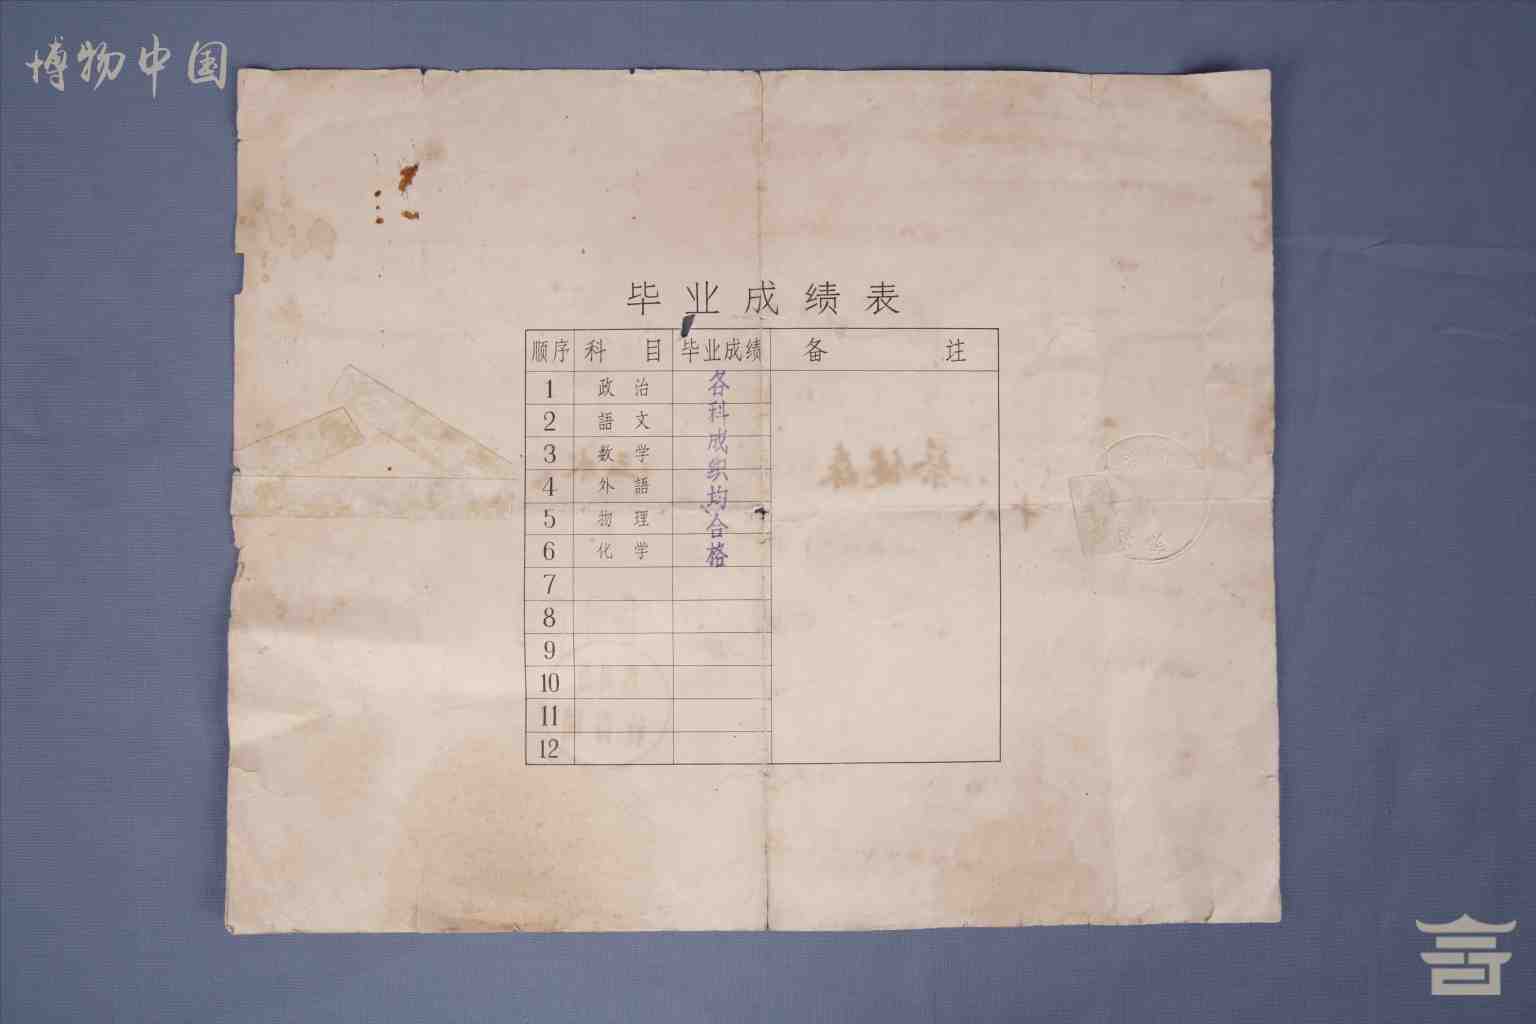 博物中国
毕业成绩表
顺序 科目 毕业成绩 备注
1 政治
2 語文
3 数学
4 外語
5 物理
6 化学
7
8
9
10
11
12
各科成织均合格